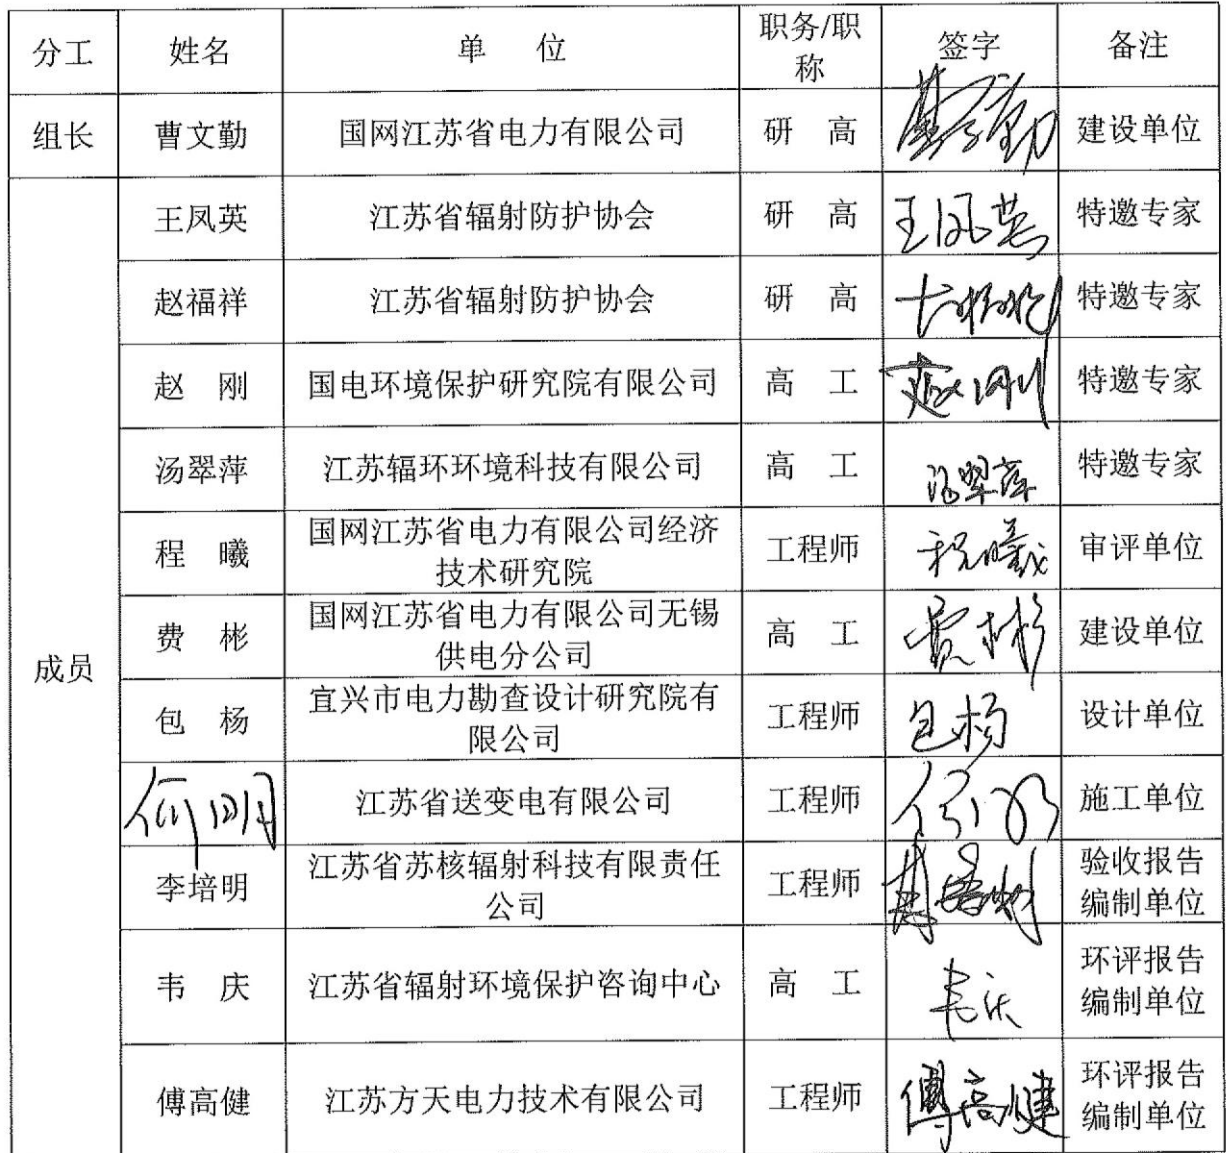 分工 姓名 单 位 职务/职称 签字 备注
组长 曹文勤 国网江苏省电力有限公司 研 高 曹文勤 建设单位
成员
王凤英 江苏省辐射防护协会 研 高 王凤英 特邀专家
赵福祥 江苏省辐射防护协会 研 高 特邀专家
赵 刚 国电环境保护研究院有限公司 高 工 赵刚 特邀专家
汤翠萍 江苏辐环环境科技有限公司 高 工 汤翠萍 特邀专家
程 曦 国网江苏省电力有限公司经济
技术研究院 工程师 程曦 审评单位
费 彬 国网江苏省电力有限公司无锡
供电分公司 高 工 费彬 建设单位
包 杨 宜兴市电力勘查设计研究院有
限公司 工程师 包杨 设计单位
江苏省送变电有限公司 工程师 施工单位
李培明 江苏省苏核辐射科技有限责任
公司 工程师 验收报告
编制单位
韦 庆 江苏省辐射环境保护咨询中心 高 工 韦庆 环评报告
编制单位
傅高健 江苏方天电力技术有限公司 工程师 傅高健 环评报告
编制单位